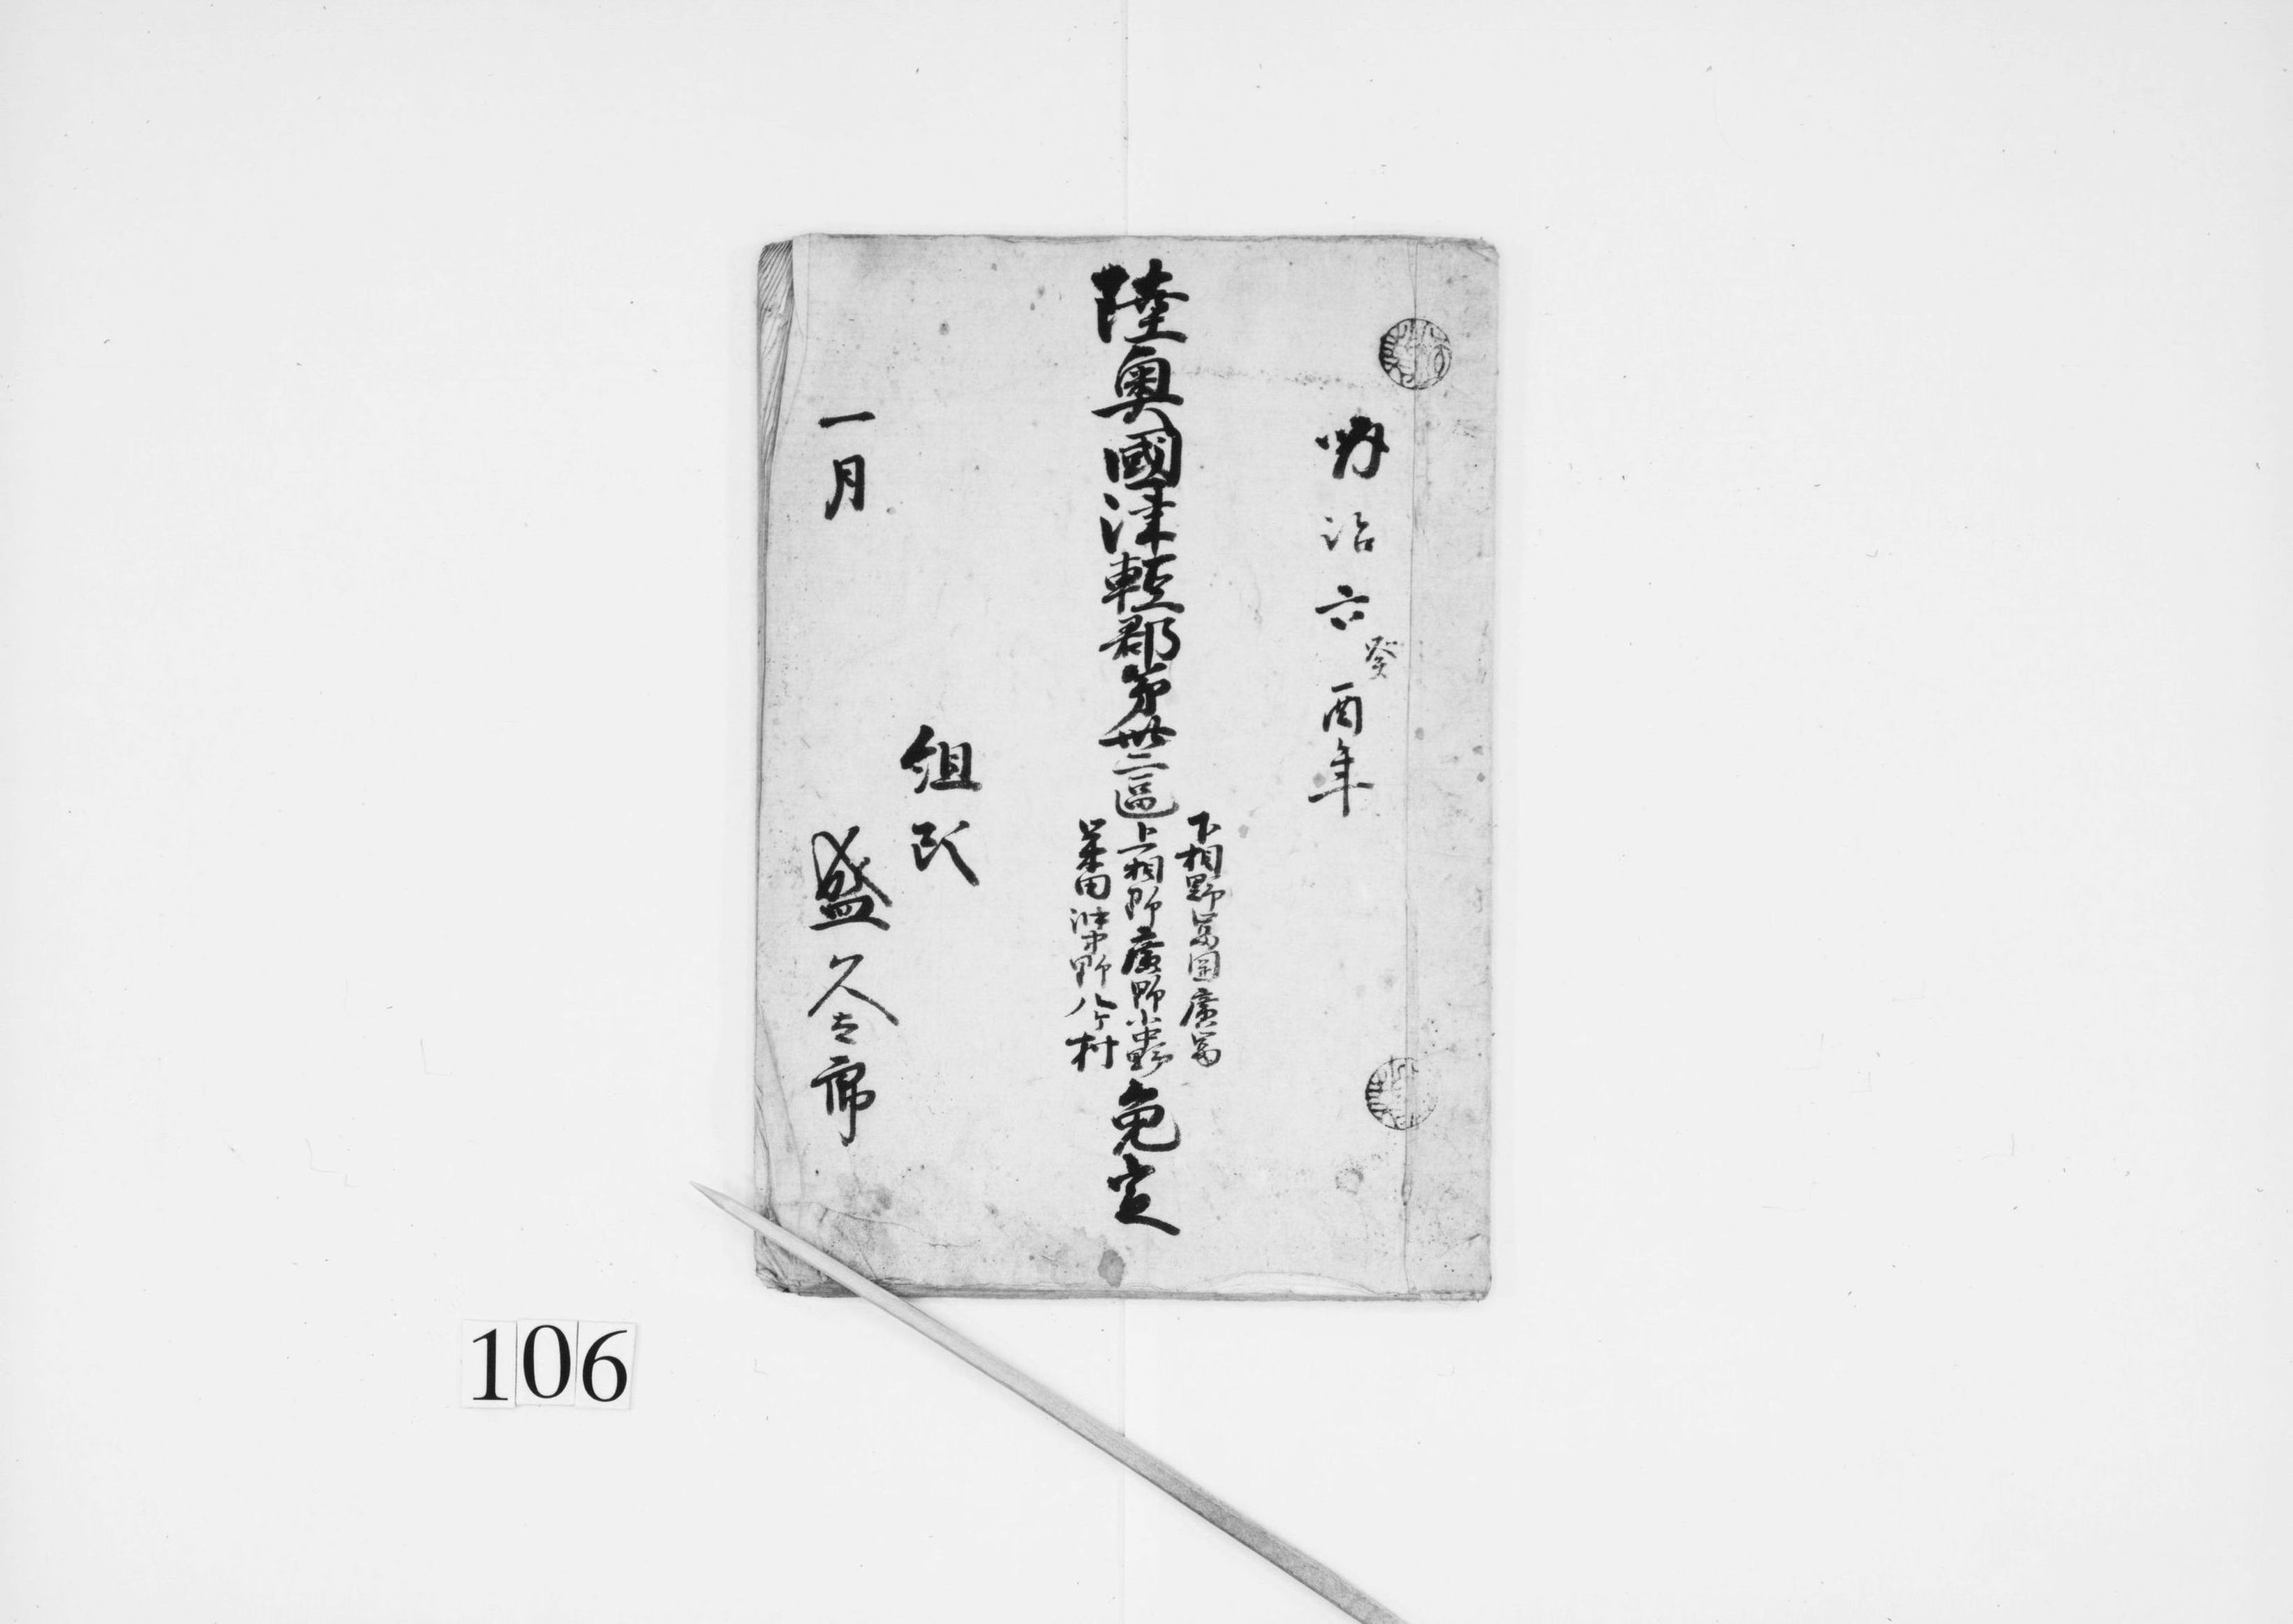 明治六癸酉年
陸奥國津軽郡第卅二區
下相野冨圍廣冨
上相野廣野小中野
菜田漆野八ヶ村
免定
組頭
盛久太郎
一月
106